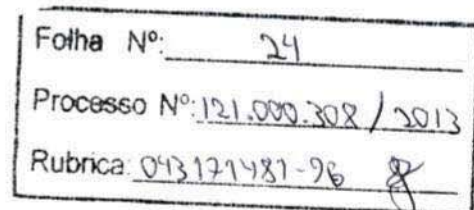 Folha Nº: 24
Processo Nº: 121.000.308 / 2013
Rubrica: 043171481-96